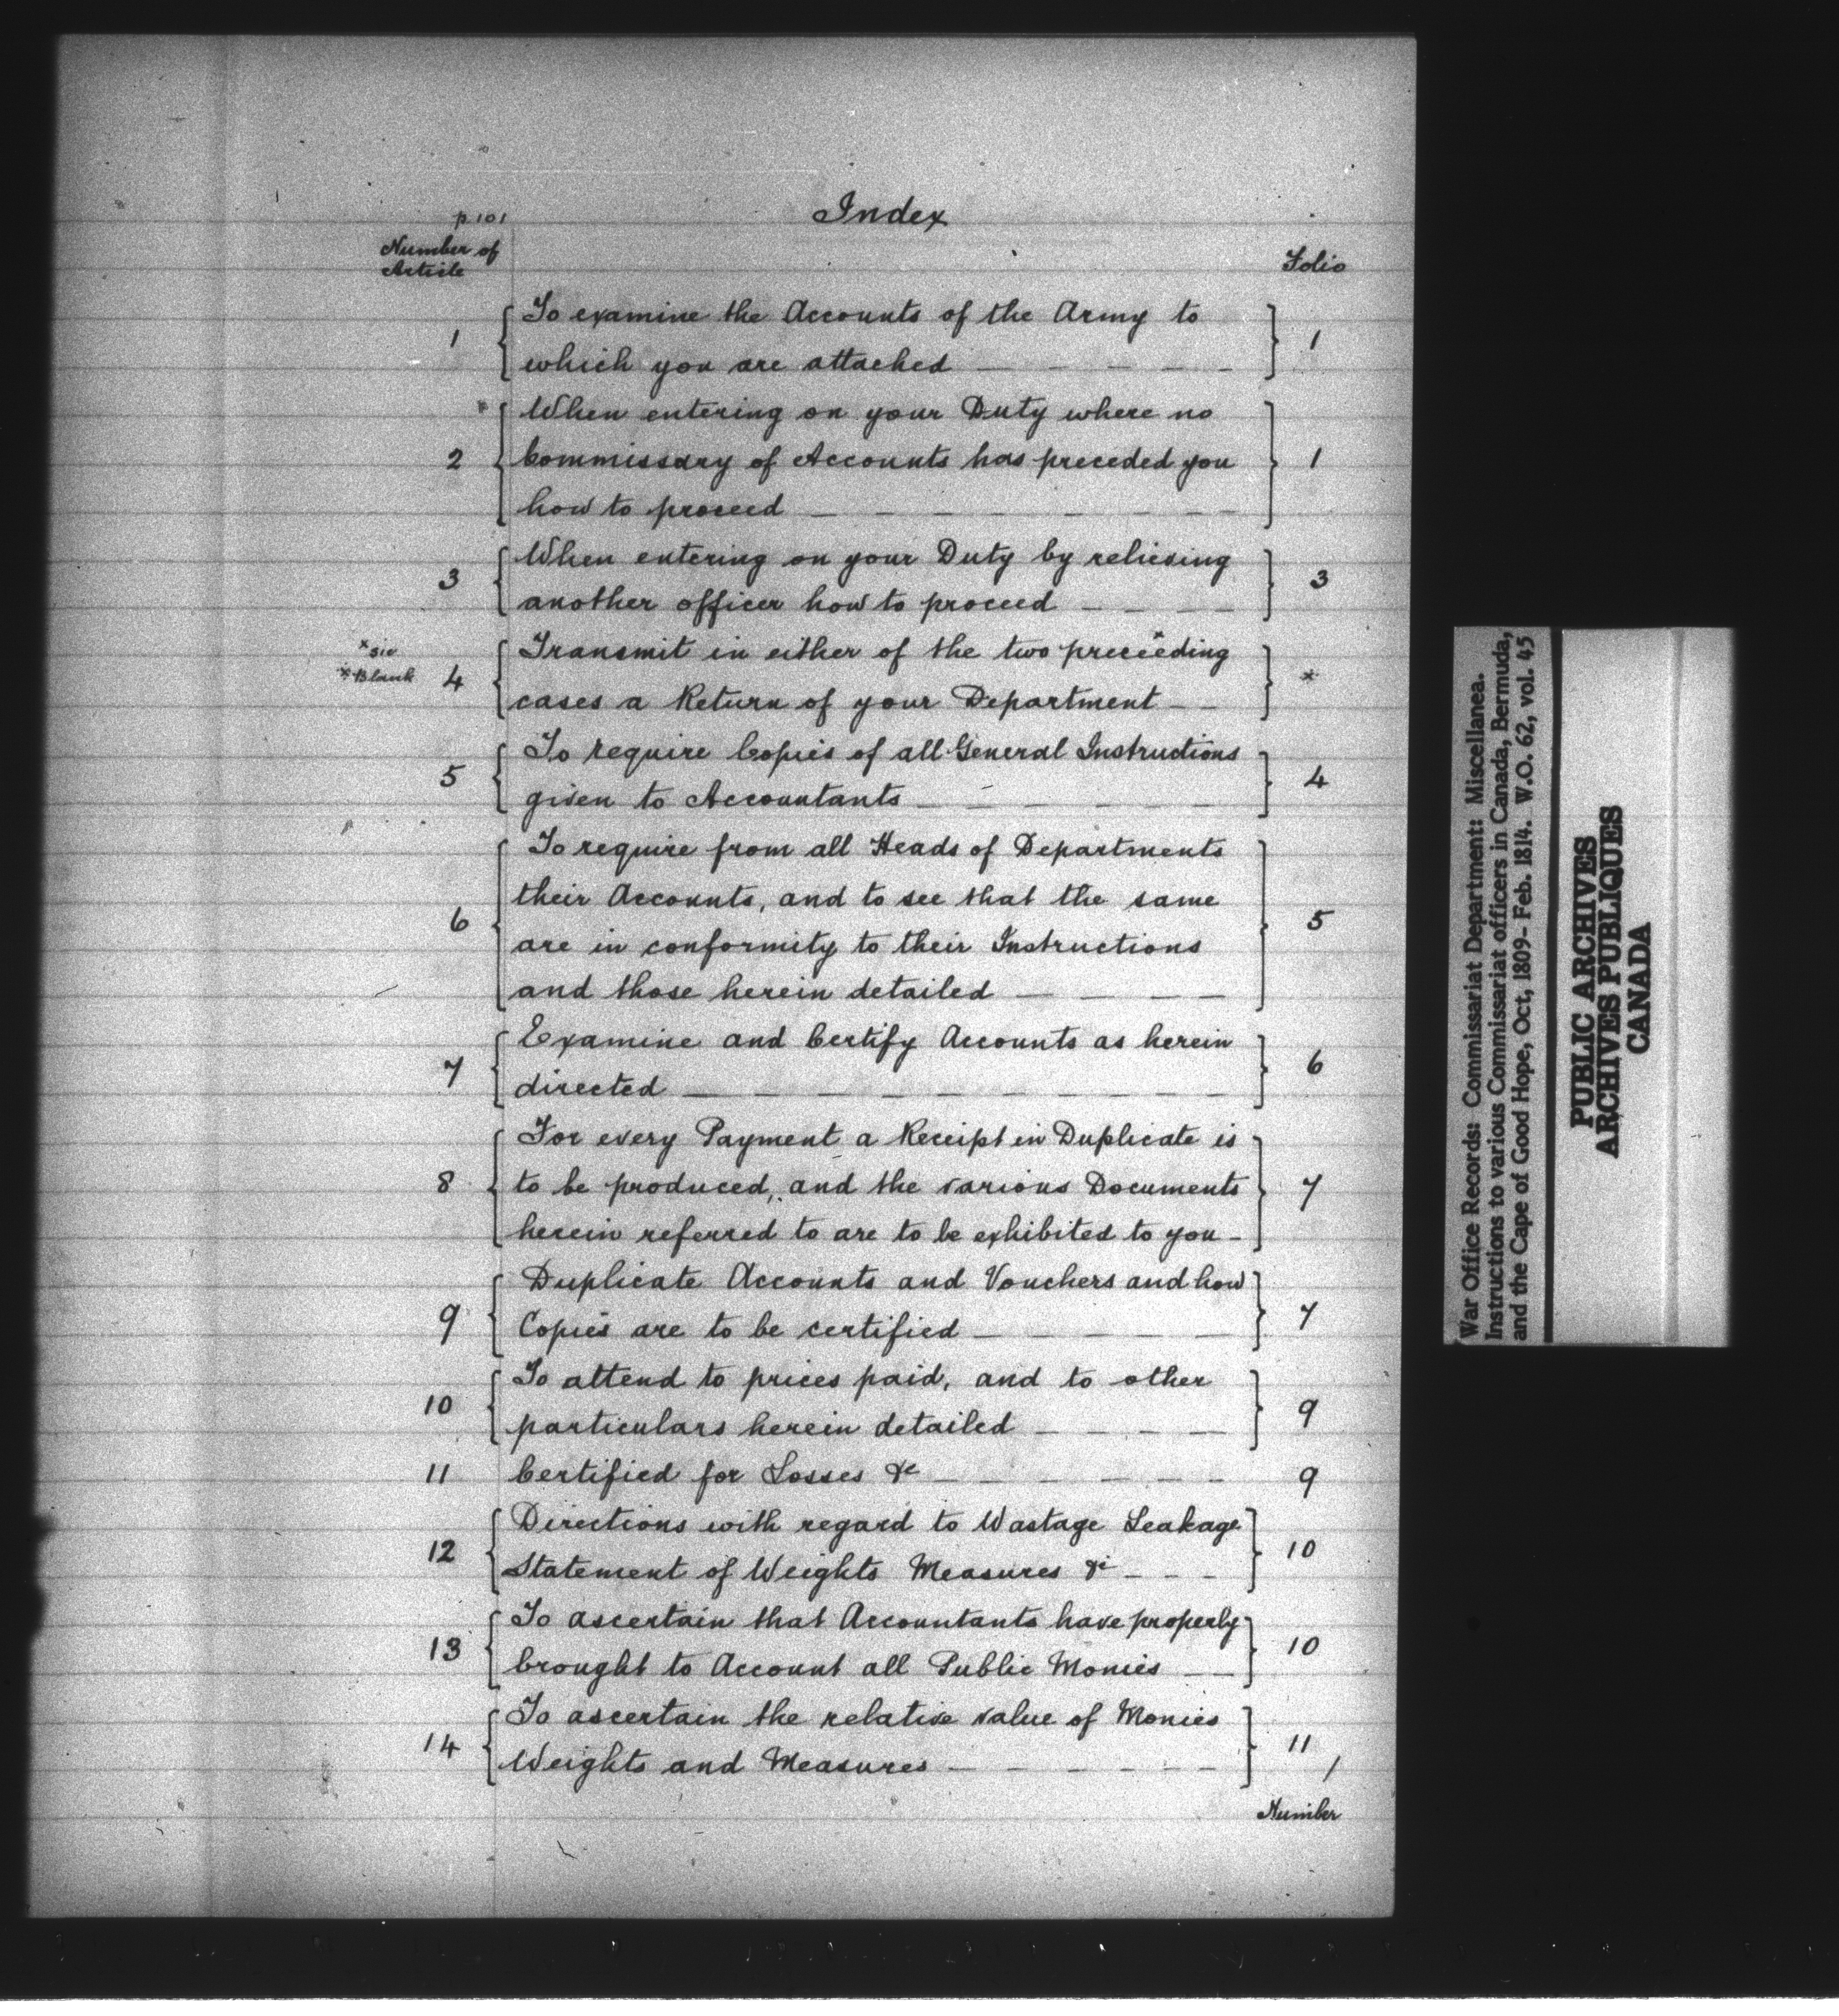 p.101
Index
Number of
Article
Folio
1 To examine the Accounts of the Army to
which you are attached 1
When entering on your Duty where no
2 Commissary of Accounts has preceded you 1
how to proceed
When entering on your Duty by relieving
3 another officer how to proceed 3
*sic Transmit in either of the two preceeding*
*Blank 4 cases a Return of your Department *
To require Copies of all General Instructions
5 given to Accountants 4
To require from all Heads of Departments
their Accounts, and to see that the same
6 are in conformity to their Instructions 5
and those herein detailed
Examine and Certify Accounts as herein
7 directed 6
For every Payment a Receipt in Duplicate is
8 to be produced, and the various Documents 7
herein referred to are to be exhibited to you
Duplicate Accounts and Vouchers and how
9 Copies are to be certified 7
To attend to prices paid, and to other
10 particulars herein detailed 9
11 Certified for Losses &c 9
Directions with regard to Wastage Leakage
12 Statement of Weights Measures &c 10
To ascertain that Accountants have properly
13 brought to Account all Public Monies 10
To ascertain the relative value of Monies
14 Weights and Measures 11 /
Number
War Office Records: Commissariat Department: Miscellanea.
Instructions to various Commissariat officers in Canada, Bermuda,
and the Cape of Good Hope, Oct, 1809- Feb. 1814. W.O. 62, vol. 45
PUBLIC ARCHIVES
ARCHIVES PUBLIQUES
CANADA